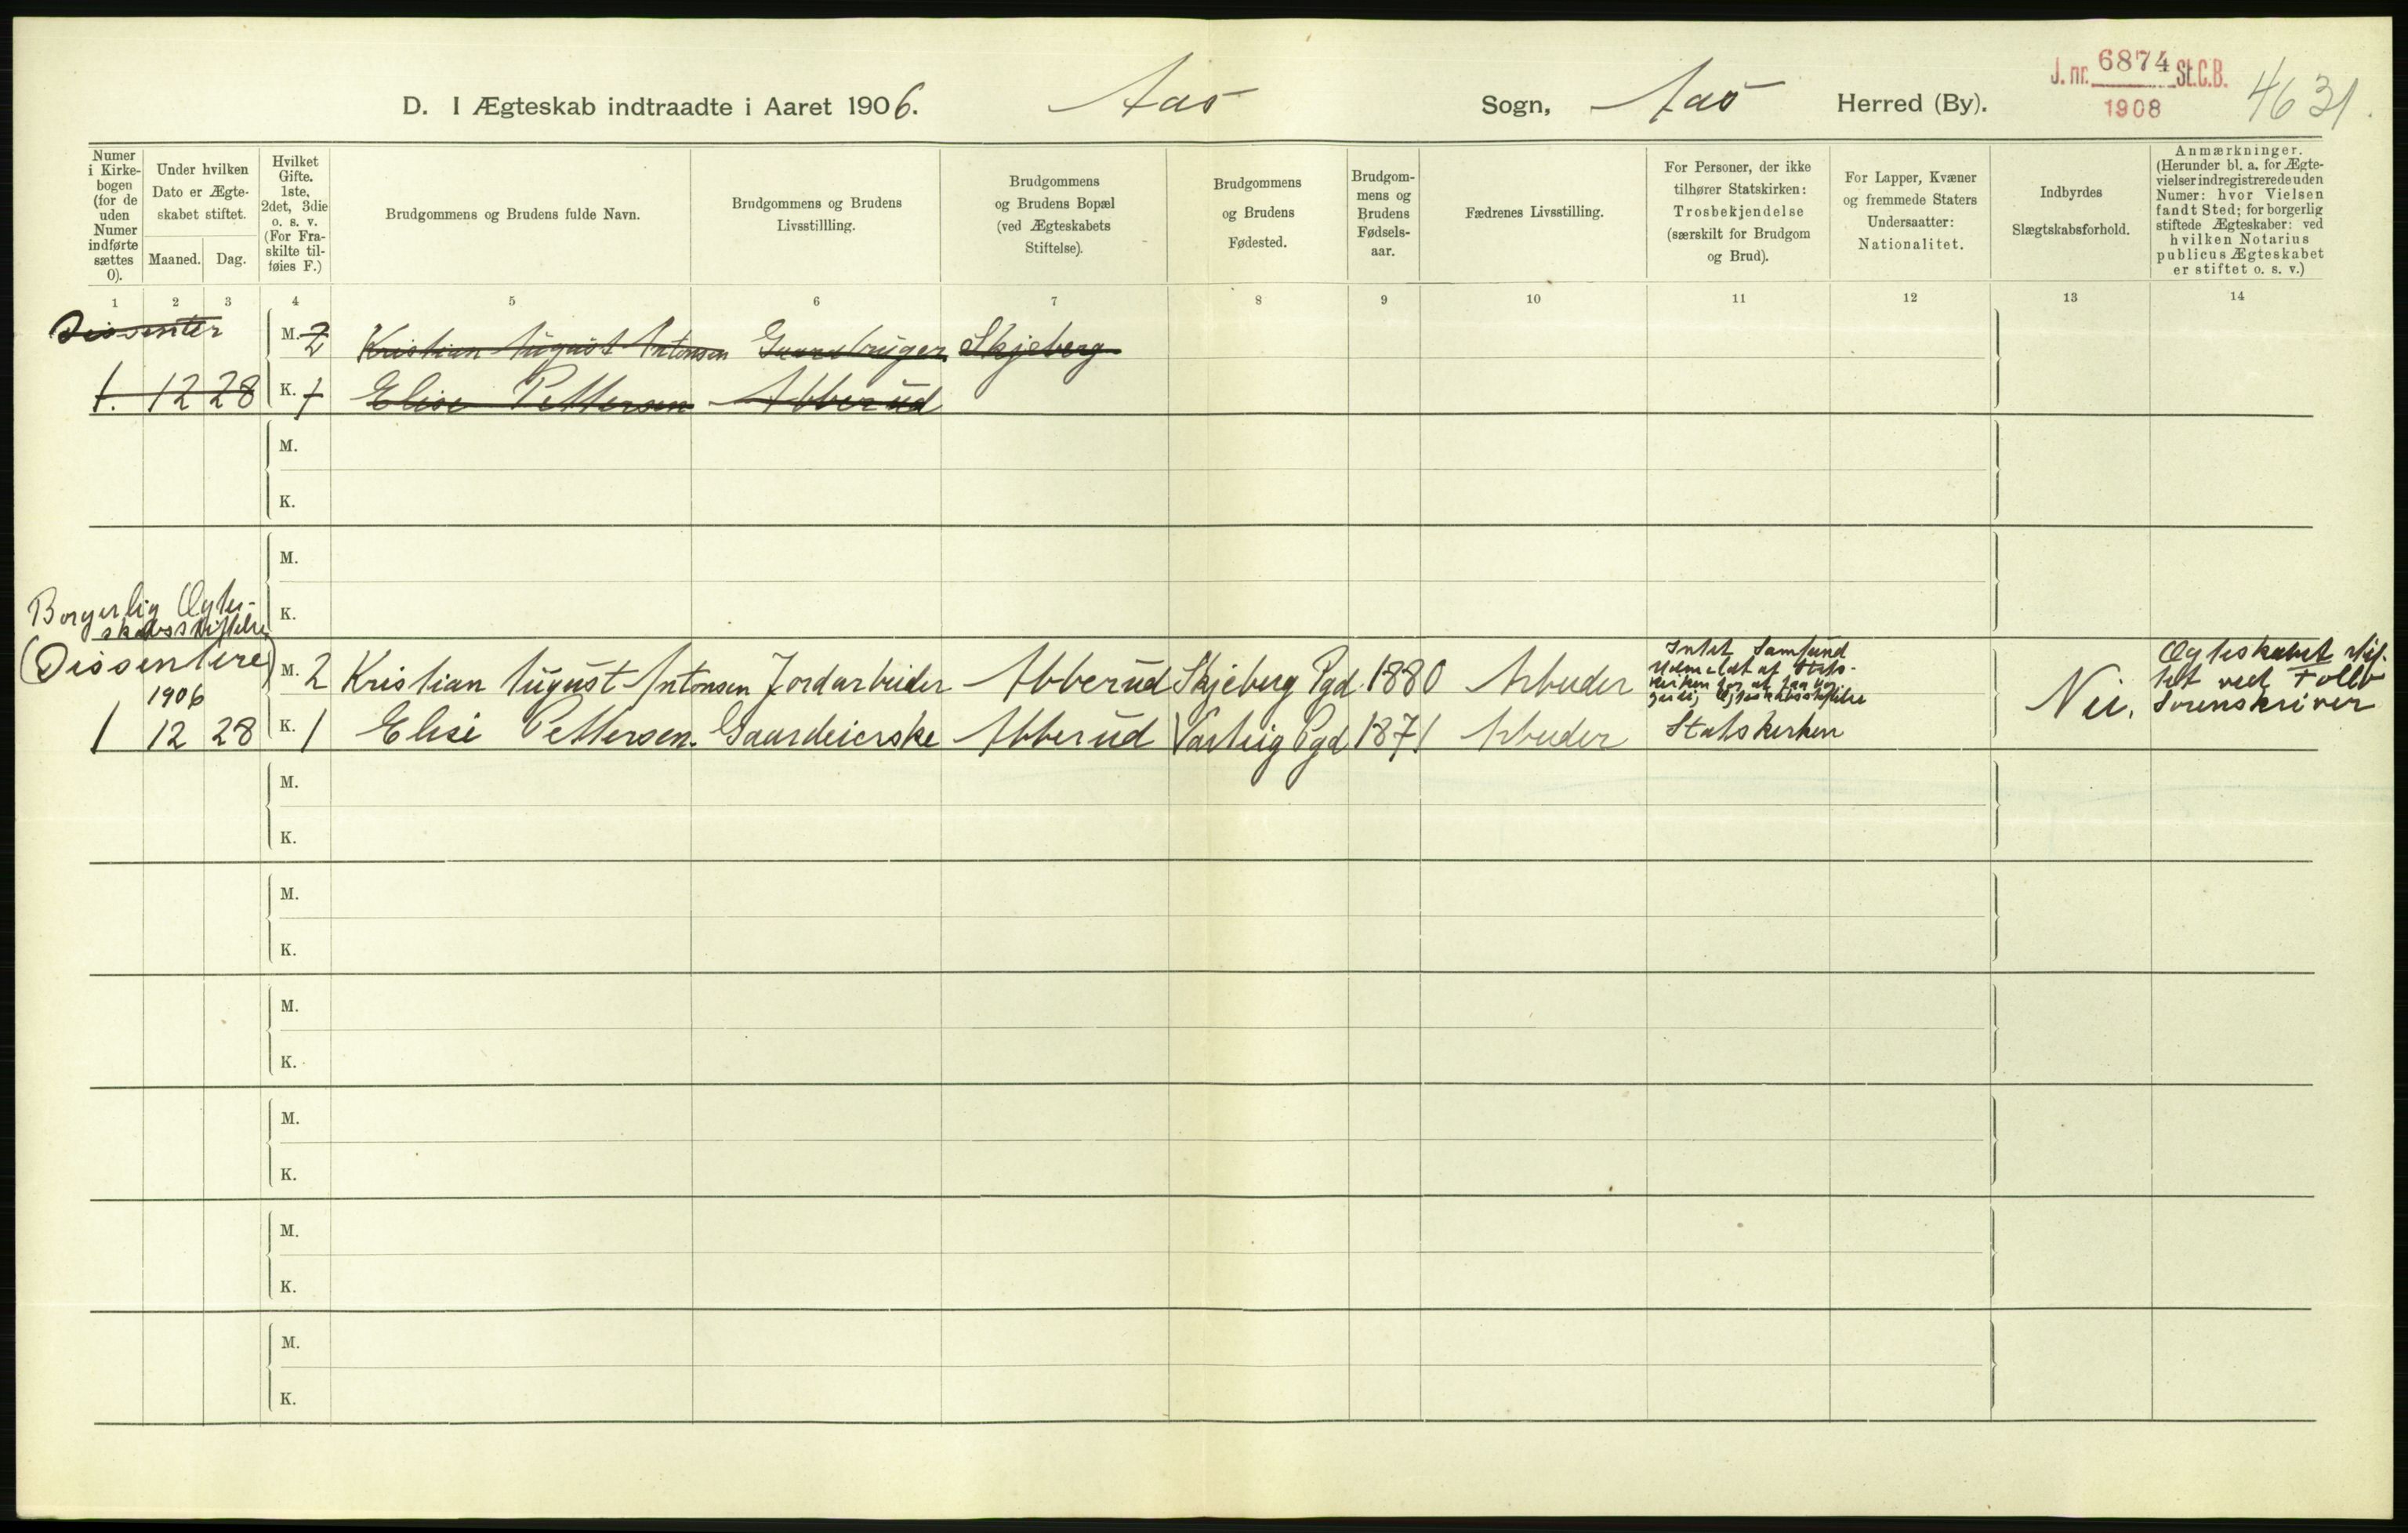 D. I Ægteskab indtraadte i Aaret 1906. Aas Sogn, Aas Herred (By).
J. nr. 6874 St.C.B.
1908
4631.
Numer i Kirkebogen (for de uden Numer indførte sættes 0).
Under hvilken Dato er Ægteskabet stiftet.
Maaned. Dag.
Hvilket Gifte. 1ste, 2det, 3die o. s. v. (For Fraskilte tilføies F.)
Brudgommens og Brudens fulde Navn.
Brudgommens og Brudens Livsstillling.
Brudgommens og Brudens Bopæl (ved Ægteskabets Stiftelse).
Brudgommens og Brudens Fødested.
Brudgommens og Brudens Fødselsaar.
Fædrenes Livsstilling.
For Personer, der ikke tilhører Statskirken: Trosbekjendelse (særskilt for Brudgom og Brud).
For Lapper, Kvæner og fremmede Staters Undersaatter: Nationalitet.
Indbyrdes Slægtskabsforhold.
Anmærkninger. (Herunder bl. a. for Ægtevielser indregistrerede uden Numer: hvor Vielsen fandt Sted; for borgerlig stiftede Ægteskaber: ved hvilken Notarius publicus Ægteskabet er stiftet o. s. v.)
1 2 3 4 5 6 7 8 9 10 11 12 13 14
Dissenter
M. 2 Kristian August Antonsen Gaardbruger Skjeberg
1. 12 28 K. 1 Elise Pettersen Abberud
M.
K.
M.
K.
Borgerlig Ægte-
skabsstiftelse
(Dissentere)
1906
M. 2 Kristian August Antonsen Jordarbeider Abberud Skjeberg Pgd. 1880 Arbeider
Intet Samfund
Udmeldt af Stats-
kirken for at faa bor
gerlig Ægteskabsstiftelse
Nei.
Ægteskabet stif-
tet ved Follo
Sorenskriver
1 12 28 K. 1 Elise Pettersen. Gaardeierske Abberud Varteig Pgd 1871 Arbeider Statskirken
M.
K.
M.
K.
M.
K.
M.
K.
M.
K.
M.
K.